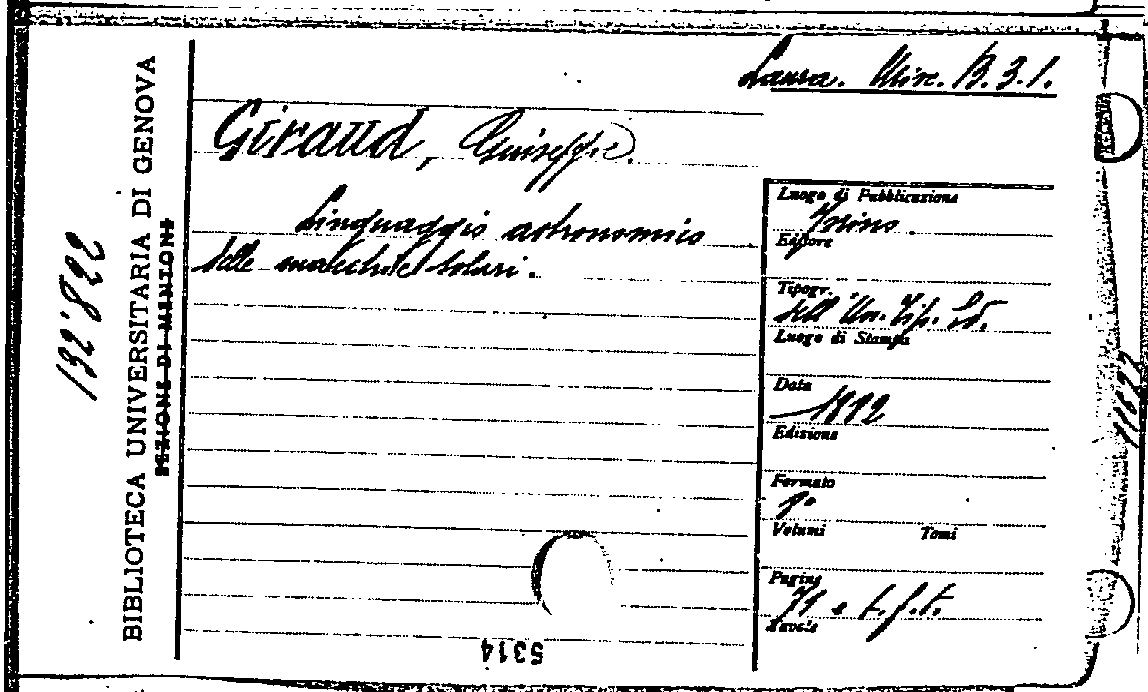 Laura. Misc. B.3.1.
Giraud, Giuseppe.
Linguaggio astronomico
delle macchie solari.
132.822
BIBLIOTECA UNIVERSITARIA DI GENOVA
Luogo di Pubblicazione
Torino.
Editore
Tipogr.
dell'Un. Tip. Ed.
Luogo di Stampa
Data
Edizione
Formato
Volumi Tomi
Pagine
71 e t.f.t.
Tavole
5314